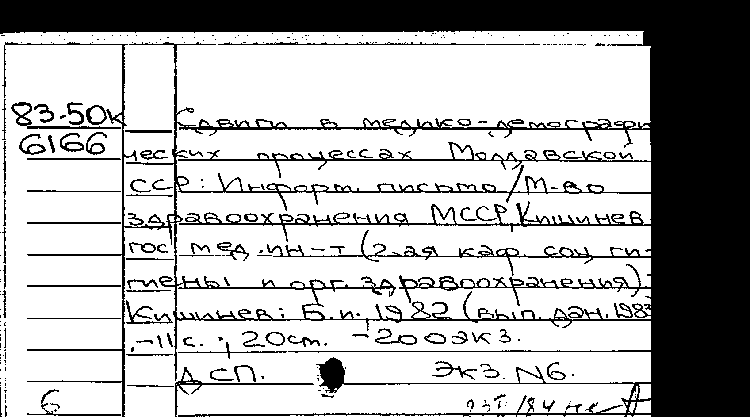 83-50к Сдвиги в медико-демографи
6166 ческих процессах Молдавской
ССР: Информ. письмо/М-во
здравоохранения МССР, Кишинев
гос мед. ин-т (2-ая каф. соц ги-
гиены и орг. здравоохранения).
Кишинев: Б.и., 1982 (вып. дан. 1983
.-11 с.; 20 см. -200 экз.
ДСП. Экз. N6.
6